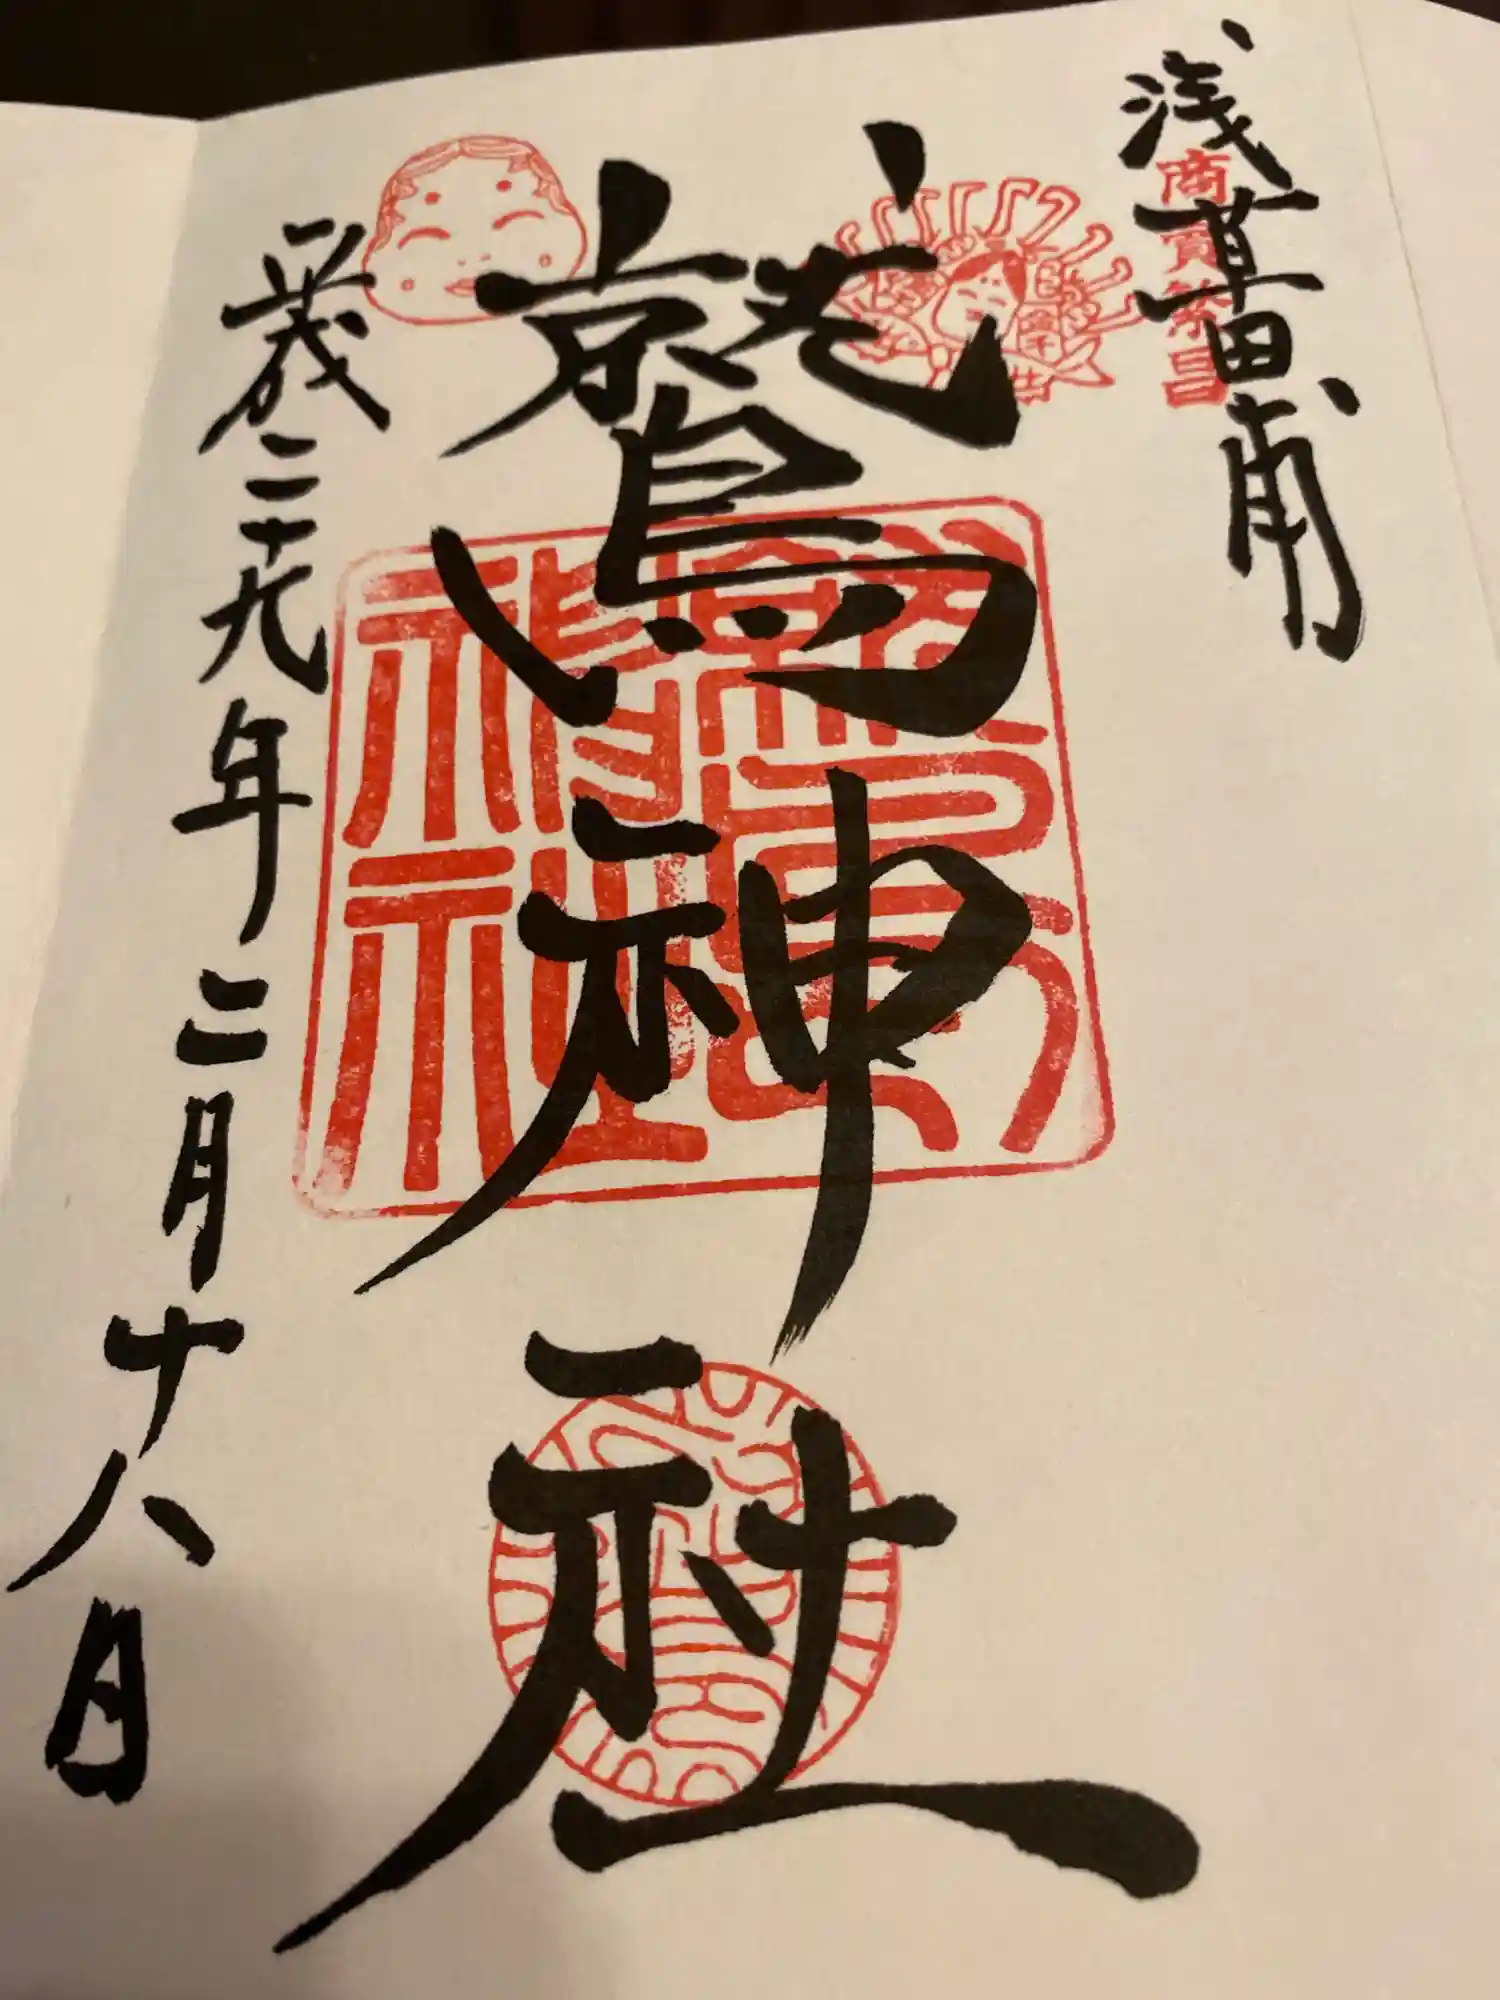 浅草田甫
商賣繁昌
鷲神社
鷲神社
平成二十九年二月十八日